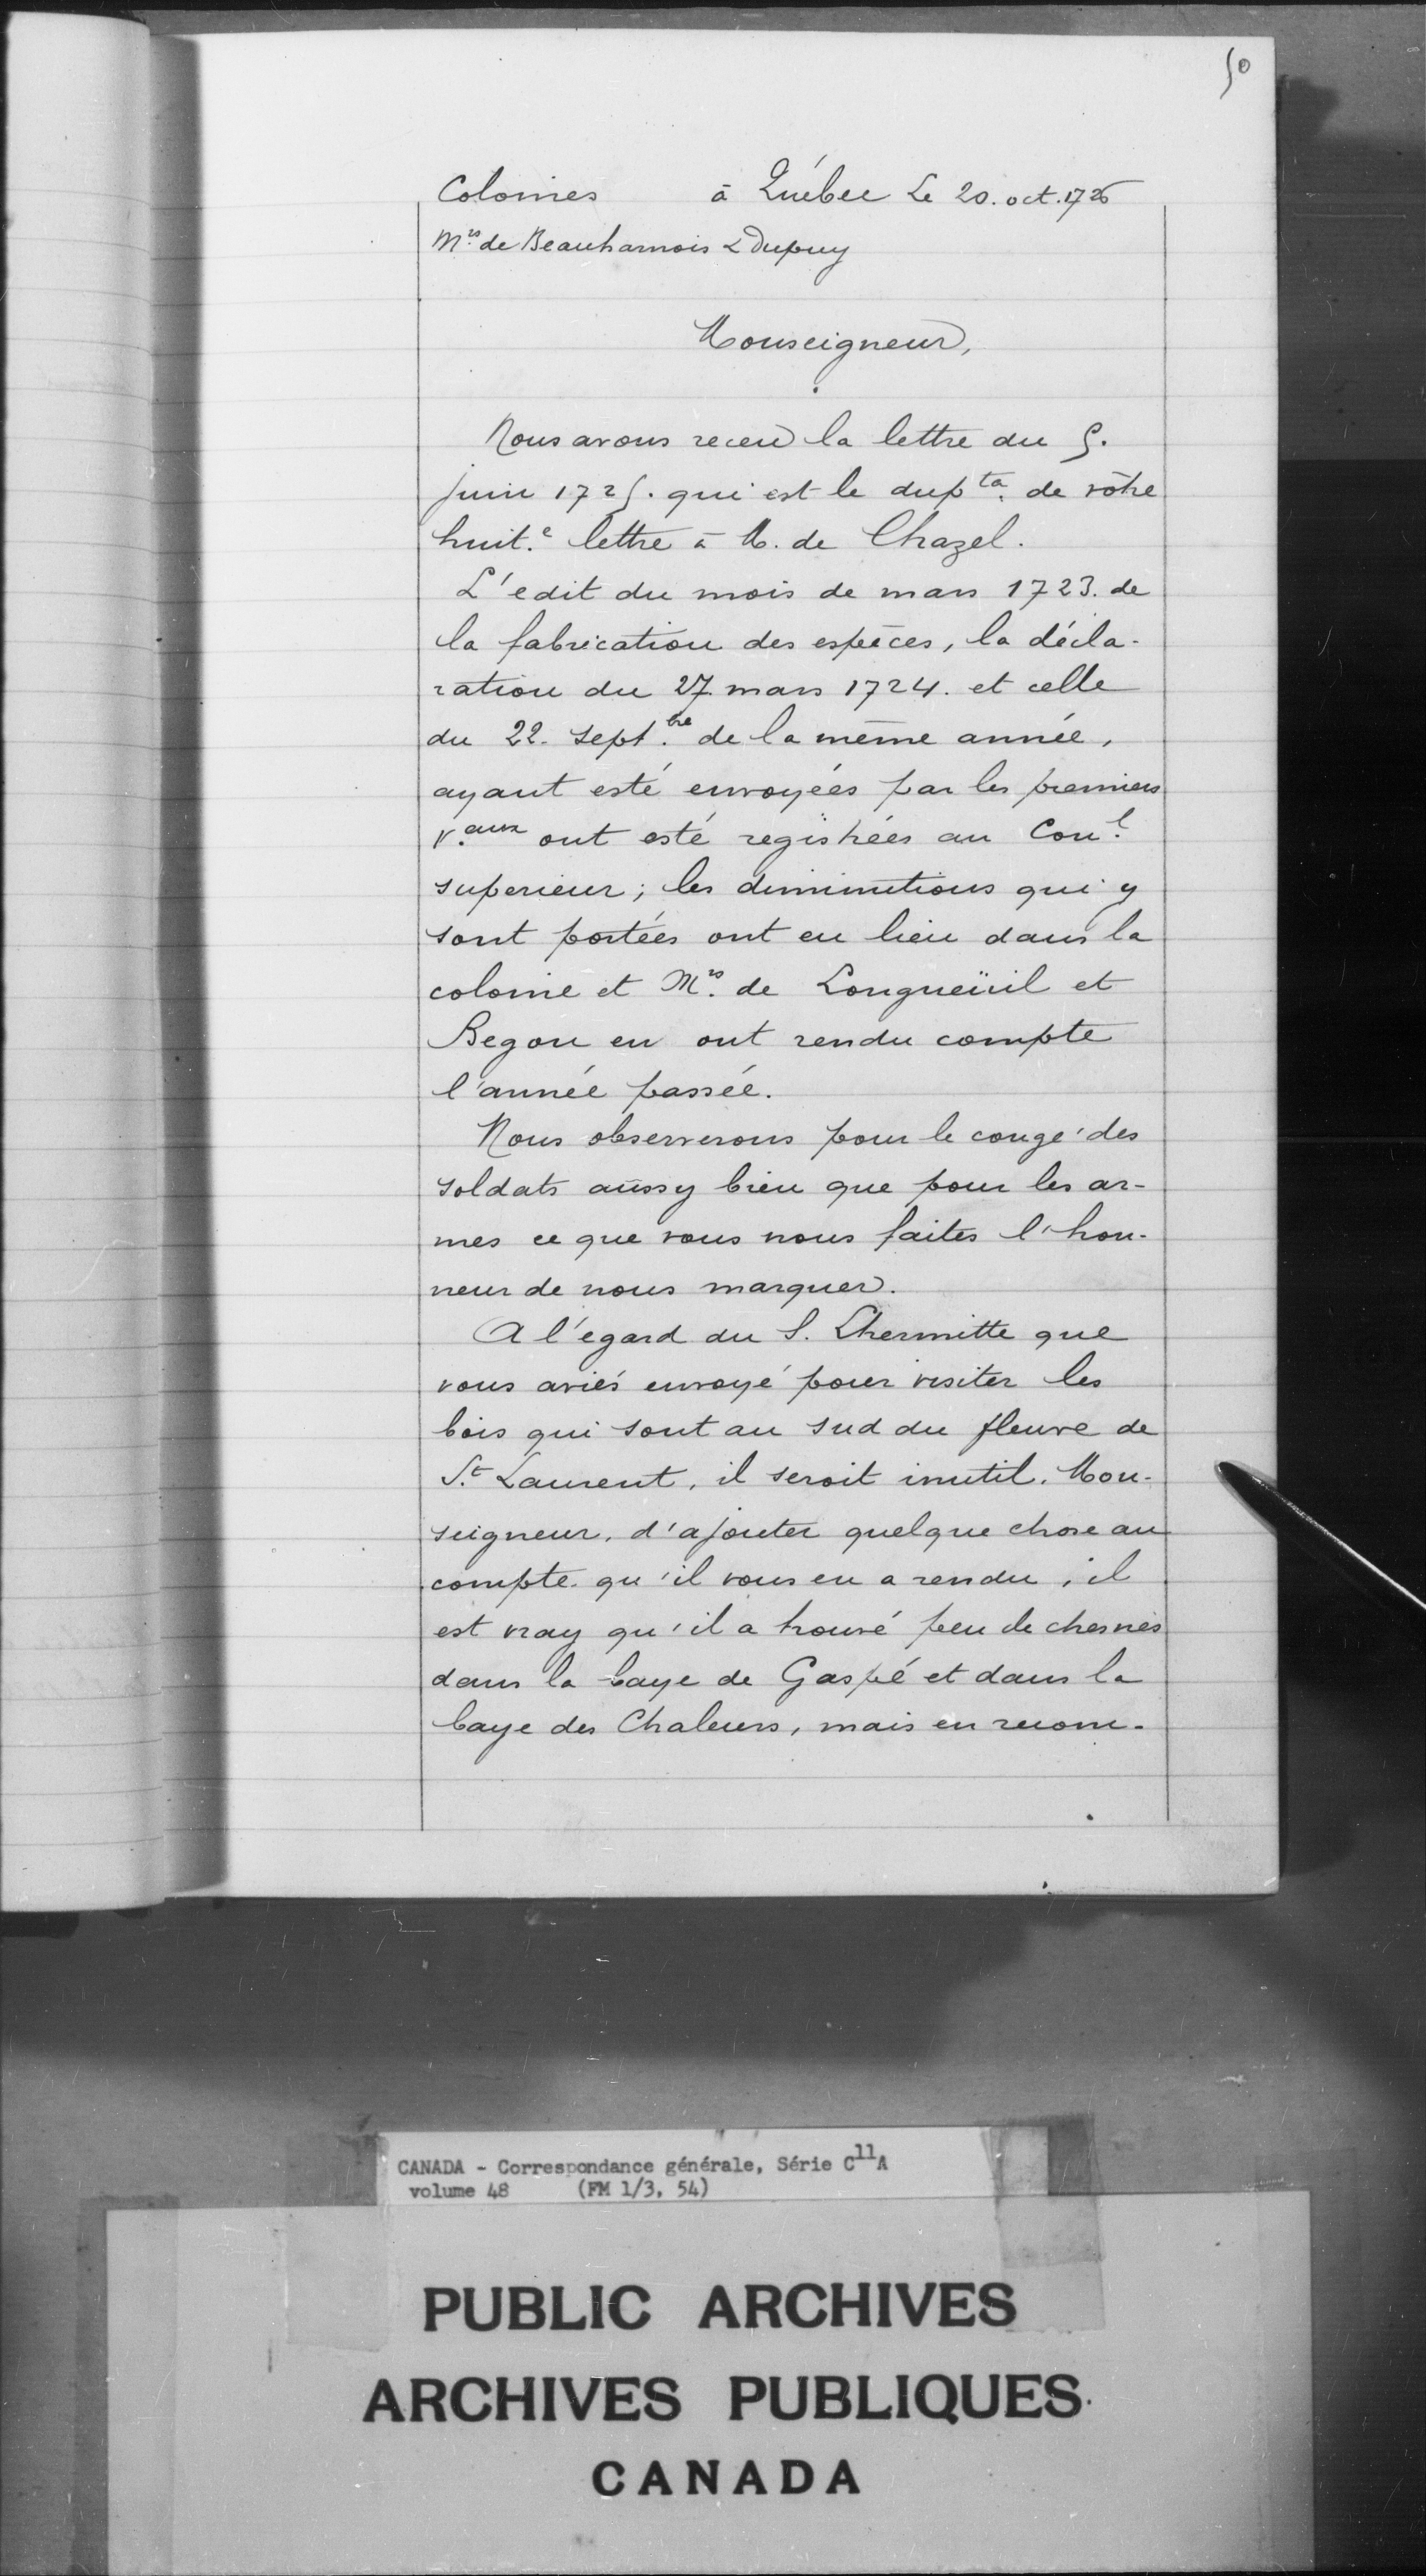 50
Colonies à Québec Le 20. oct. 1726
Mrs. de Beauharnois & Dupuy
Monseigneur,
Nous avons receu la lettre du 5.
juin 1725. qui est le dupta. de vôtre
huit.e lettre à M. de Chazel.
L'edit du mois de mars 1723. de
la fabrication des espèces, la décla-
ration du 27. mars 1724. et celle
du 22. Sept.bre de la même année,
ayant esté envoyées par les premiers
v.aux ont esté registrées au Con.l
superieur; les diminutions qui y
sont portées ont eu lieu dans la
colonie et Mrs. de Longueüil et
Begon en ont rendu compte
l'année passée.
Nous observerons pour le congé des
soldats aussy bien que pour les ar-
mes ce que vous nous faites l'hon-
neur de nous marquer.
A l'égard du S. Lhermitte que
vous aviés envoyé pour visiter les
bois qui sont au sud du fleuve de
S.t Laurent, il seroit inutil, Mon-
seigneur, d'ajouter quelque chose au
compte qu'il vous en a rendu, il
est vray qu'il a trouvé peu de chesnes
dans la baye de Gaspé et dans la
baye des Chaleurs, mais en
CANADA - Correspondance générale, Série C11A
volume 48 (FM 1/3, 54)
PUBLIC ARCHIVES
ARCHIVES PUBLIQUES
CANADA